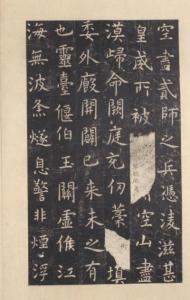 空盡貳師之兵憑淩滋甚
皇威所被空山盡
漠歸命闕庭充仞藁填
委外廄開闢已來未之有
也靈臺偃伯玉關虛候江
海無波烽燧息警非煙浮